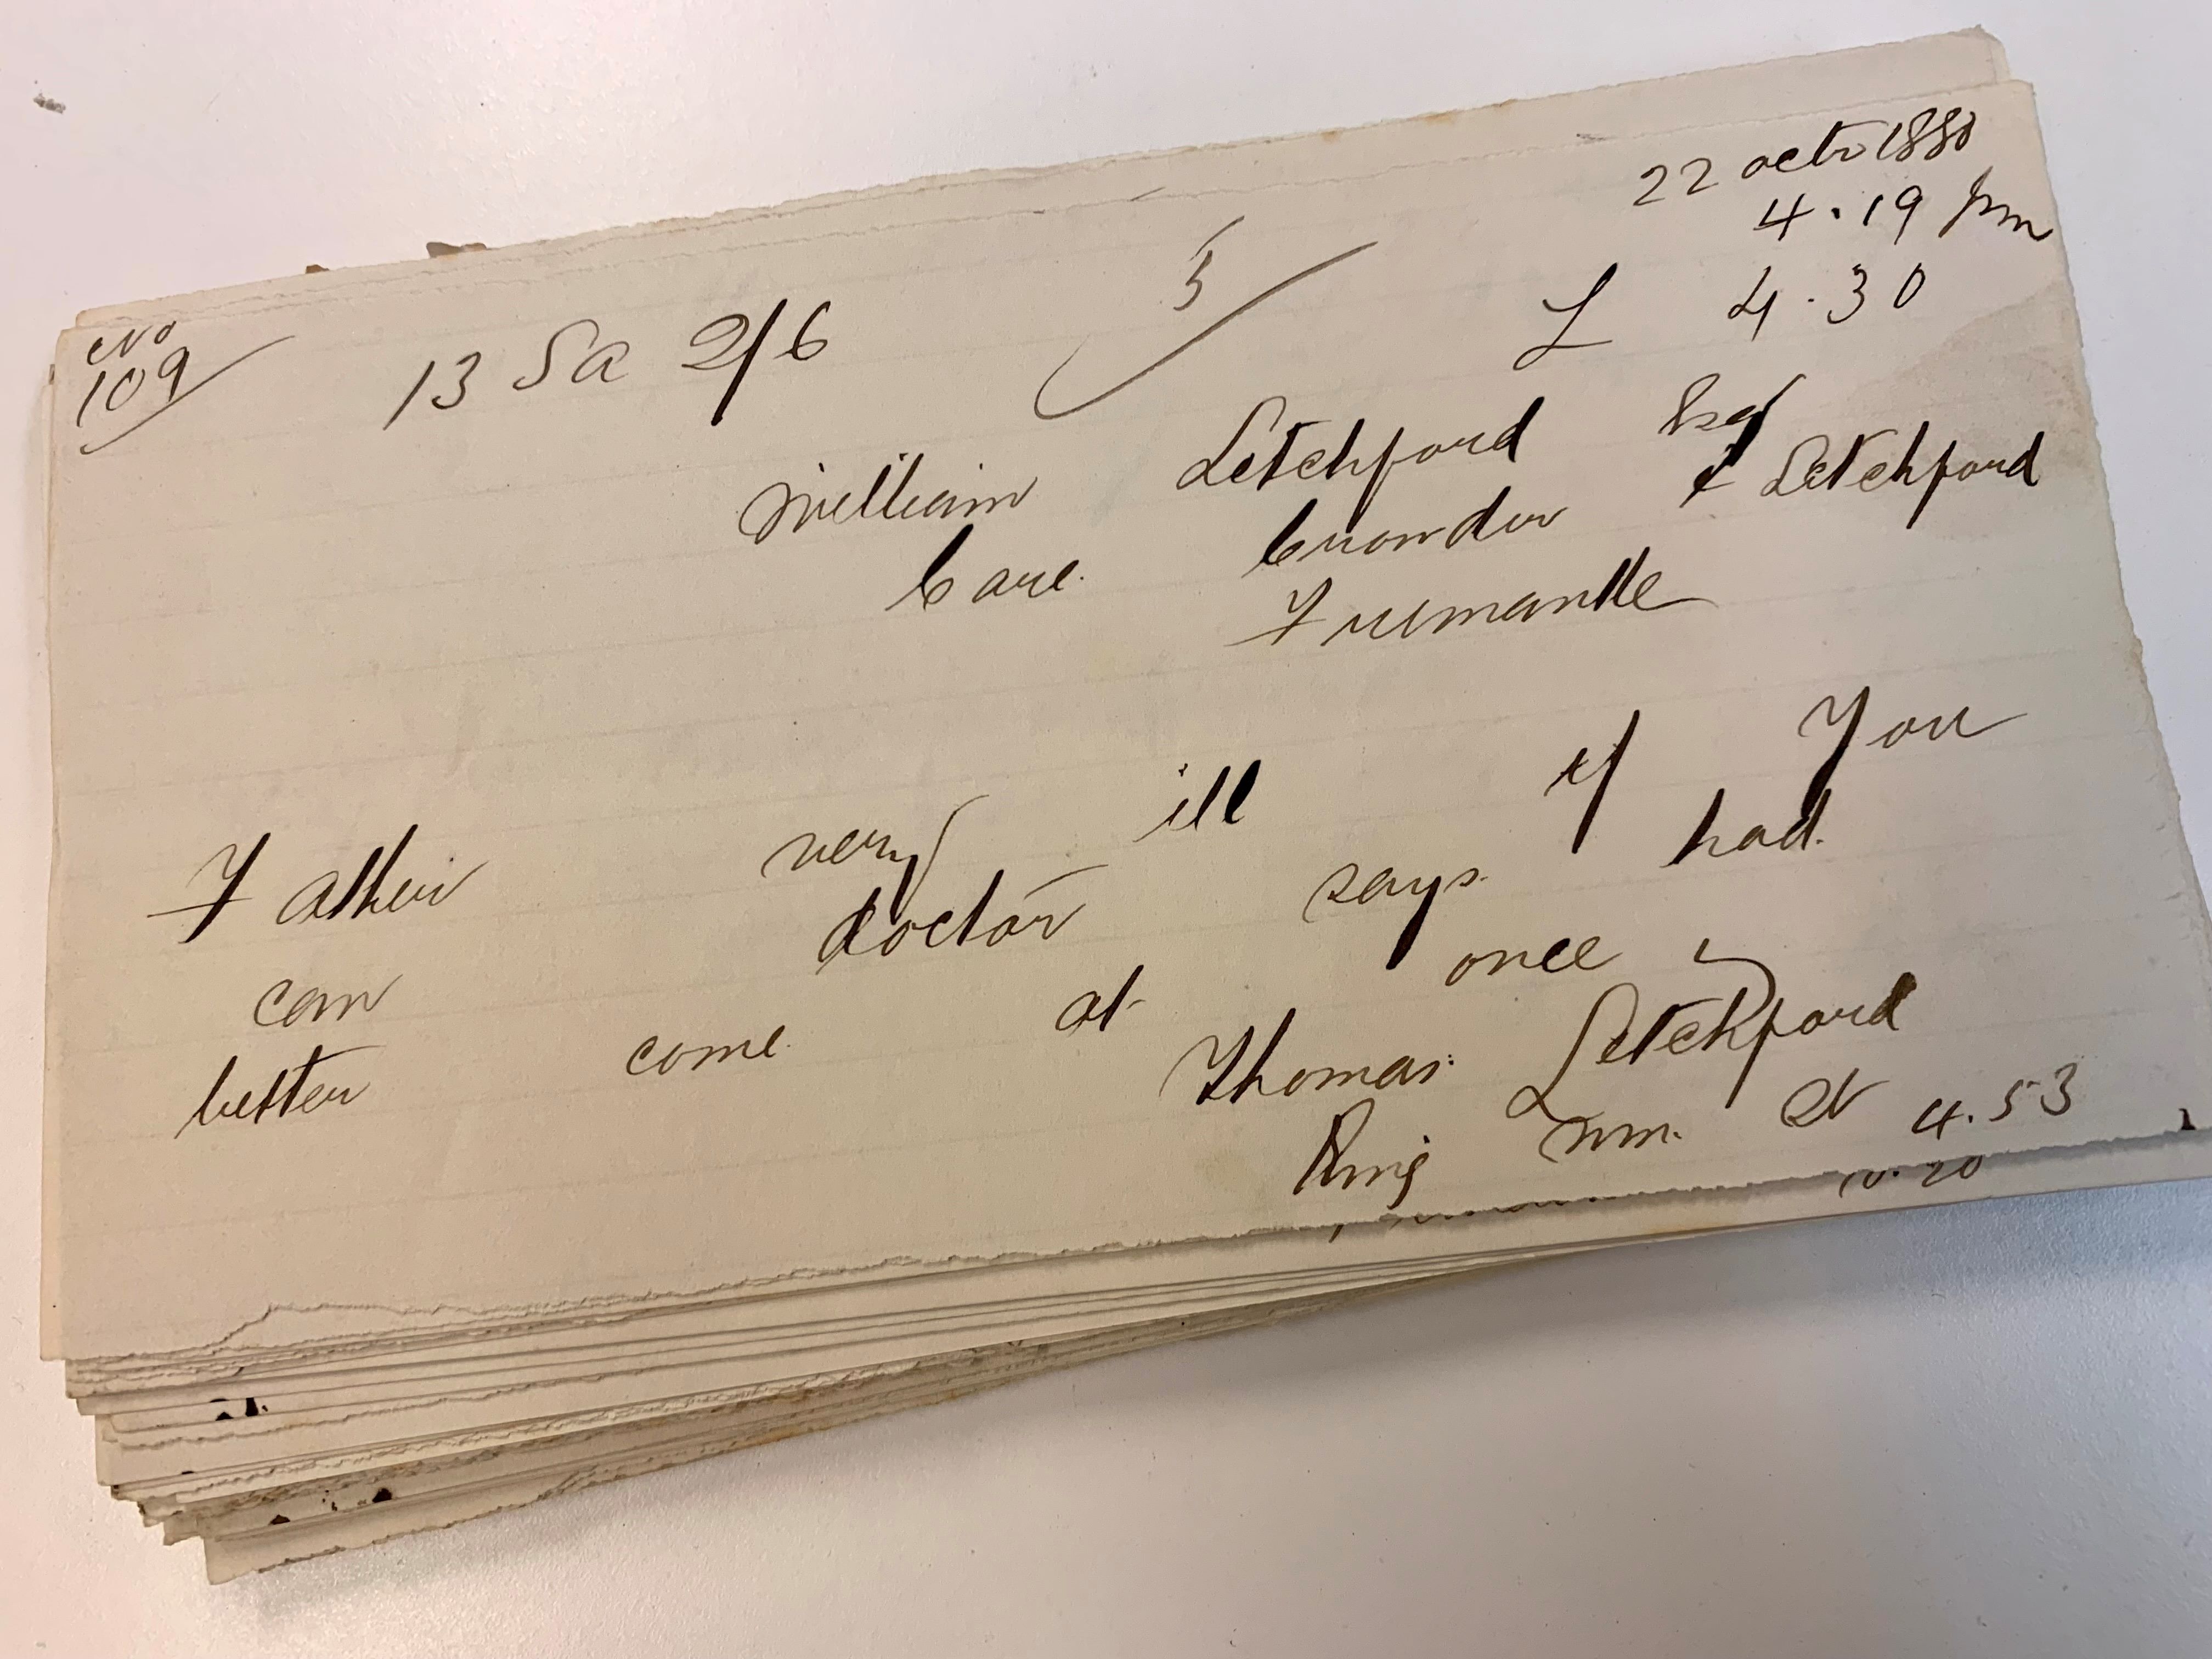 22 octr 1880
4.19 pm
No 109 13 Sa 2/6 5 L 4.30
William Letchford Esq
Care Crowder & Letchford
Fremantle
Father very ill if you
can doctor says had
better come at once
Thomas Letchford
4.53
10.20